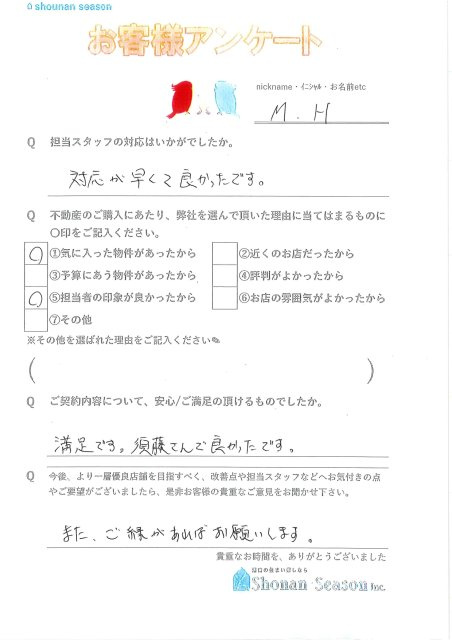 shounan season
お客様アンケート
nickname・ｲﾆｼｬﾙ・お名前etc
M.H
Q 担当スタッフの対応はいかがでしたか。
対応が早くて良かったです。
Q 不動産のご購入にあたり、弊社を選んで頂いた理由に当てはまるものに
〇印をご記入ください。
〇 ①気に入った物件があったから ②近くのお店だったから
③予算にあう物件があったから ④評判がよかったから
〇 ⑤担当者の印象が良かったから ⑥お店の雰囲気がよかったから
⑦その他
※その他を選ばれた理由をご記入ください✎
( )
Q ご契約内容について、安心/ご満足の頂けるものでしたか。
満足です。須藤さんで良かったです。
Q 今後、より一層優良店舗を目指すべく、改善点や担当スタッフなどへお気付きの点
やご要望がございましたら、是非お客様の貴重なご意見をお聞かせ下さい。
また、ご縁があればお願いします。
貴重なお時間を、ありがとうございました
湘南の住まい探しなら
Shonan Season Inc.